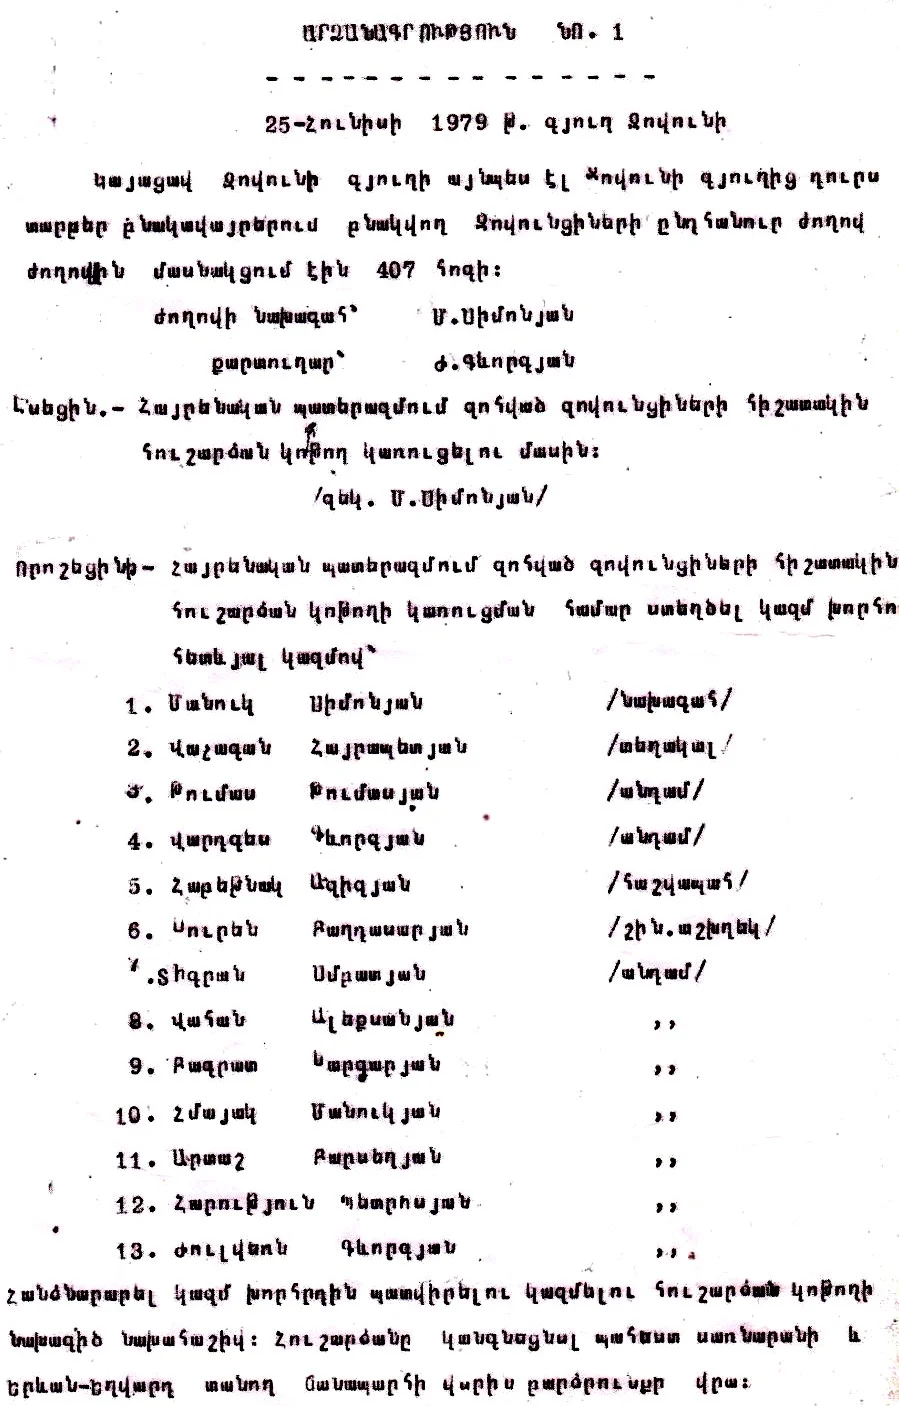 ԱՐՁԱՆԱԳՐՈՒԹՅՈՒՆ ՆՈ. 1
25-Հունիսի 1979 թ. գյուղ Զովունի
Կայացավ Զովունի գյուղի այնպես էլ Զովունի գյուղից դուրս
տարբեր բնակավայրերում բնակվող Զովունցիների ընդհանուր ժողով
ժողովին մասնակցում էին 407 հոգի:
Ժողովի նախագահ՝ Մ.Սիմոնյան
քարտուղար՝ Ժ.Գևորգյան
Լսեցին.- Հայրենական պատերազմում զոհված զովունցիների հիշատակին
հուշարձան կոթող կառուցելու մասին:
/զեկ. Մ.Սիմոնյան/
Որոշեցին.- Հայրենական պատերազմում զոհված զովունցիների հիշատակին
հուշարձան կոթողի կառուցման համար ստեղծել կազմ խորհո
հետևյալ կազմով՝
1. Մանուկ Սիմոնյան /նախագահ/
2. Վաչագան Հայրապետյան /տեղակալ/
3. Թումաս Թումասյան /անդամ/
4. Վարդգես Գևորգյան /անդամ/
5. Հաբեթնակ Ազիզյան /հաշվապահ/
6. Սուրեն Բաղդասարյան /շին.աշխղեկ/
7.Տիգրան Սմբատյան /անդամ/
8. Վահան Ալեքսանյան ,,
9. Բագրատ Մարգարյան ,,
10. Հմայակ Մանուկյան ,,
11. Արտաշ Բարսեղյան ,,
12. Հարություն Պետրոսյան ,,
13. Ժուլվեռն Գևորգյան ,,
Հանձնարարել կազմ խորհրդին պատվիրելու կազմելու հուշարձան կոթողի
նախագիծ նախահաշիվ: Հուշարձանը կանգնեցնել պահեստ սառնարանի և
Երևան-Եղվարդ տանող ճանապարհի վարիս բարձրունքը վրա: